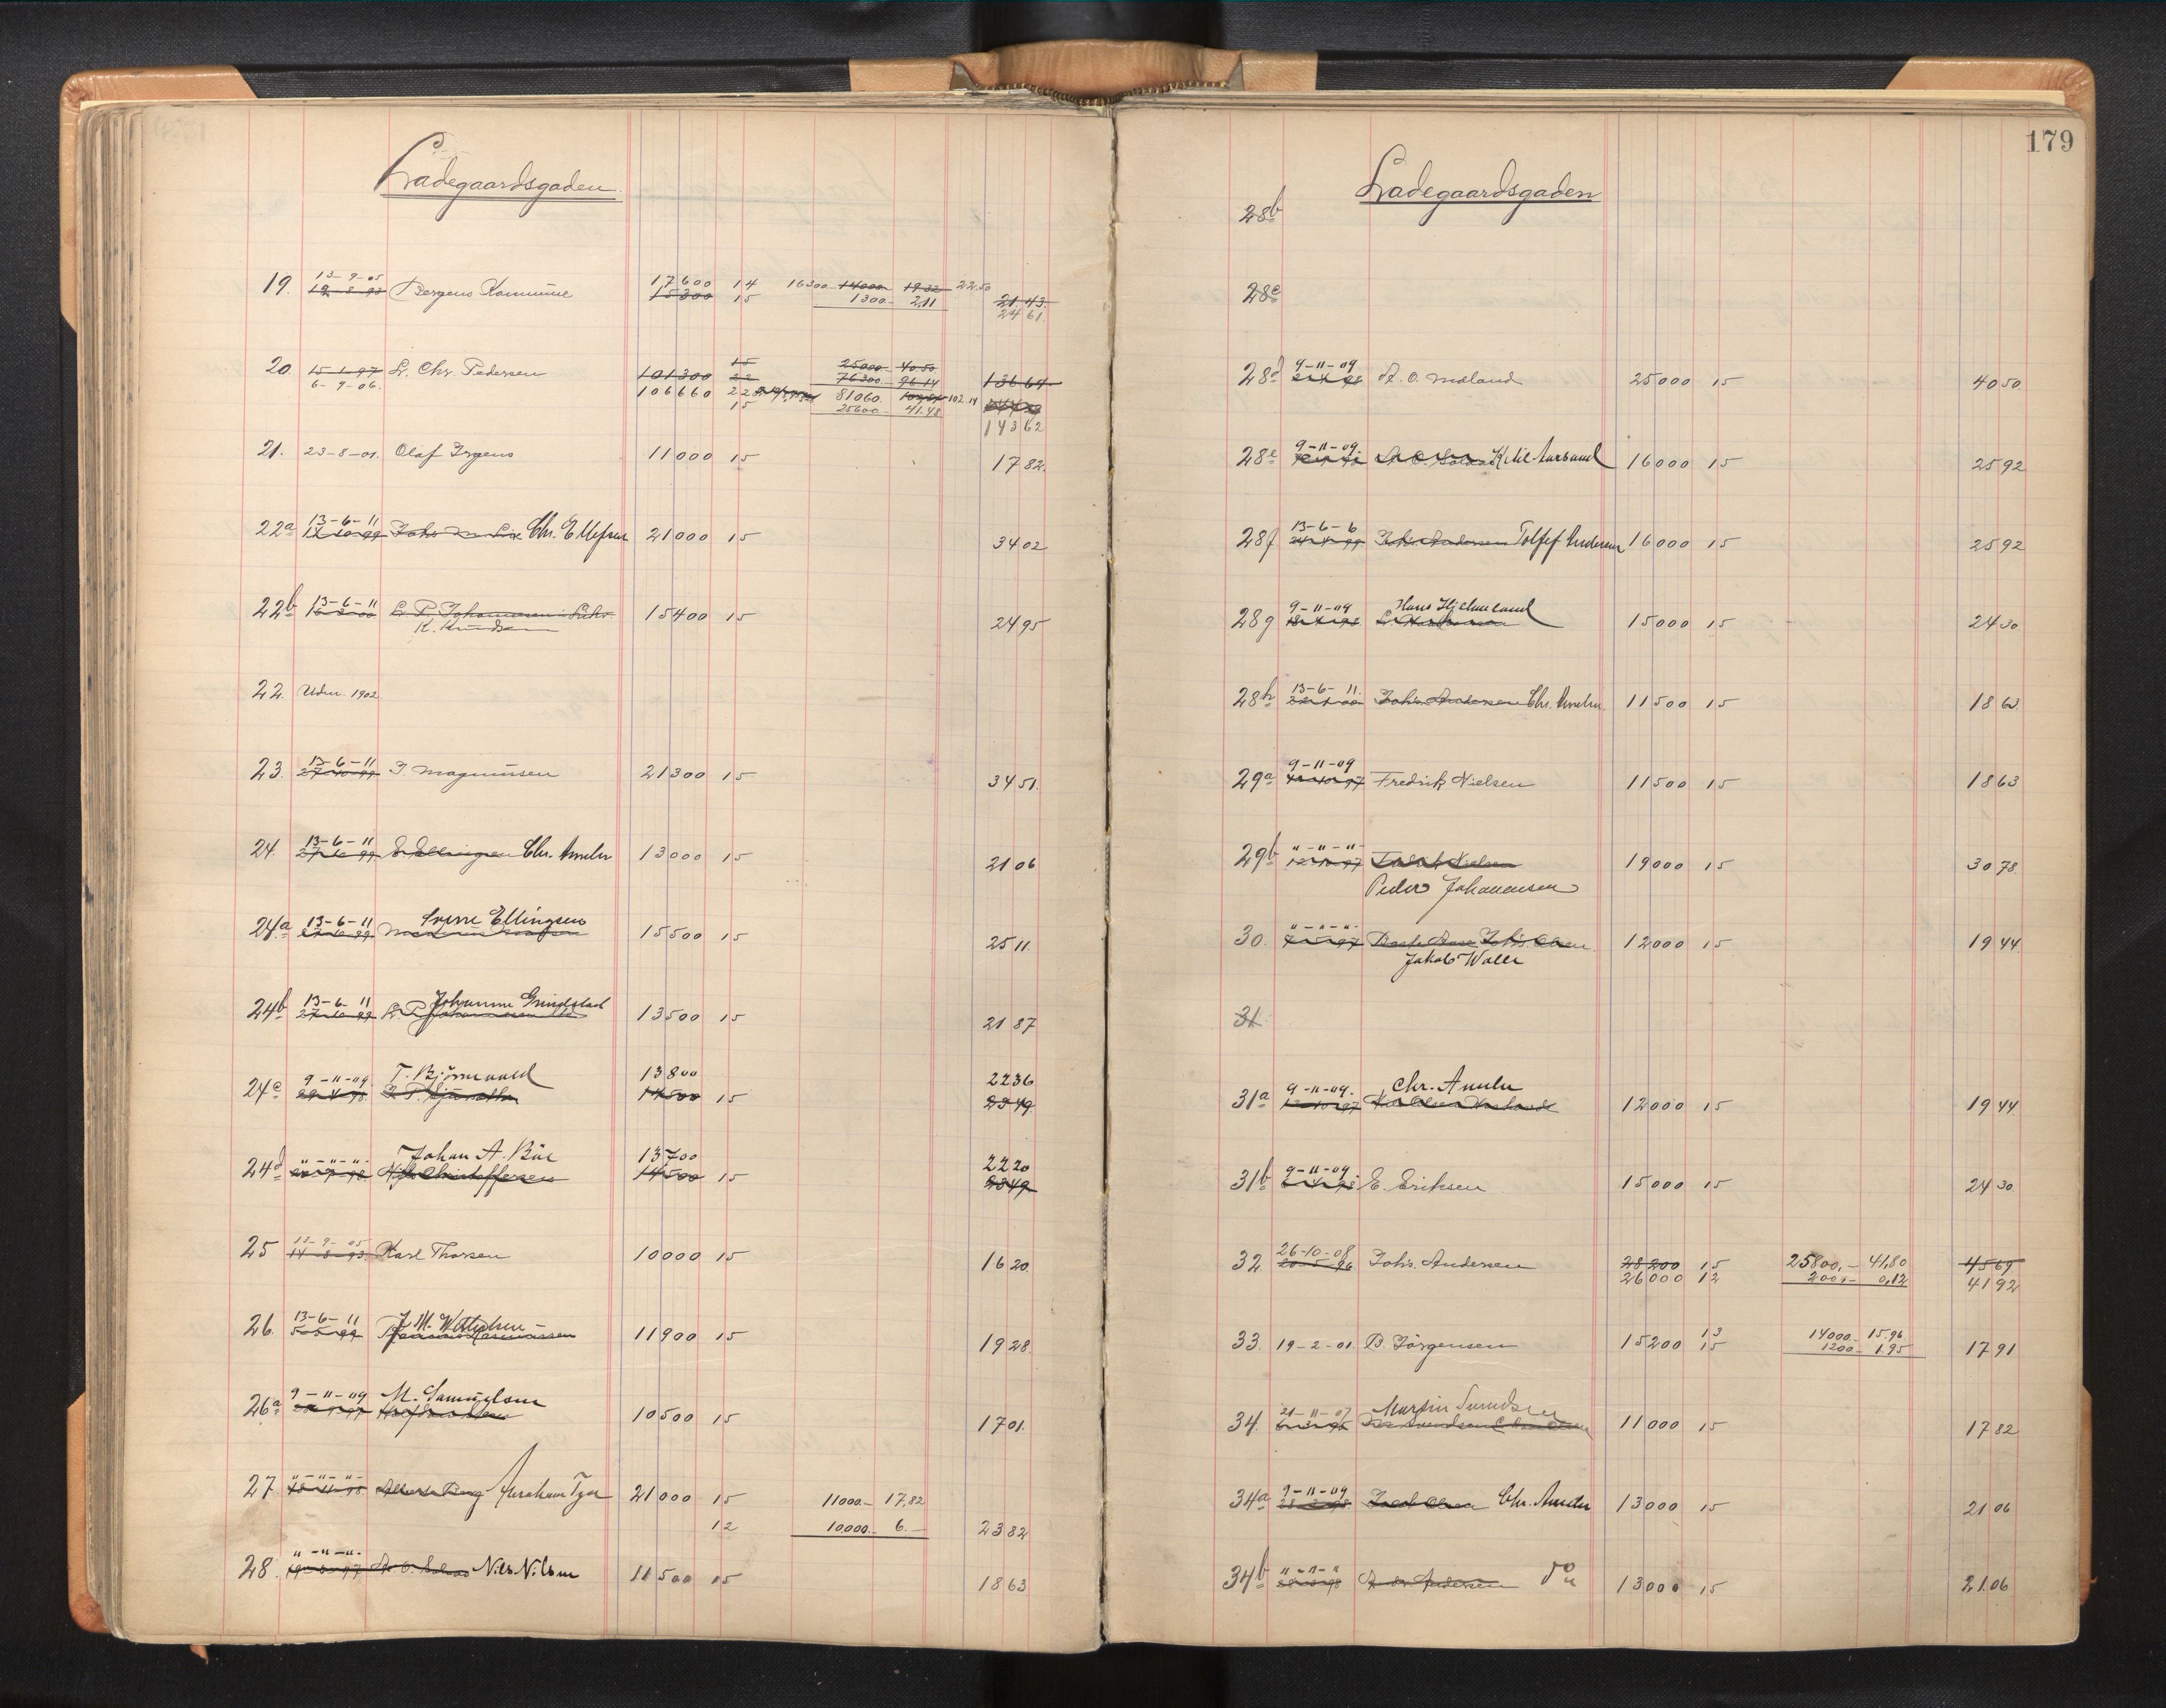 Ladegaardsgaden
19. 13-9-05 Bergens Kommune 17600 14 16300 14000 19.32 22.50
15300 15 1300 2,11 21.43
24 61
20. 15-1-97 L. Chr. Pedersen 101300 15 22 25000 40.50
6-9-06. 76300 96.14 136 64
106660 22 81060 102.14
15 25600 41.48
143 62
21. 23-8-01. Olaf Irgens 11000 15 17 82
22a 13-6-11 Chr. Ellefsen 21000 15 34 02
22b 13-6-11 L. P. Johannesen 15400 15 24 95
K. Knudsen
22. Udm. 1902
23. 13-6-11 27-10-99 I. Magnussen 21300 15 34 51.
24. 13-6-11 27-10-99 E. Ellingsen Chr. Ameln 13000 15 21 06
24a 13-6-11 Sverre Ellingsen 15500 15 25 11.
24b 13-6-11 Johanne Grindstad 13500 15 21 87
24c 9-11-09 T. Björnevald 13800 22 36
14500 15 23 49
24d "-"-"- Johan A. Bür 13700 22 20
Chistoffersen 14500 15 23 49
25 13-9-05 14-8-93 Karl Thorsen 10000 15 16 20
26. 13-6-11 5-5-99 Rasmussen 11900 15 19 28.
26a 9-11-09 M. Samuelsen 10500 15 17 01.
27. "-"-"- Abraham 21000 15 11000.- 17,82
12 10.000.- 6.- 23 82
28. "-"-"- Nils Nilsen 11500 15 18 63
179
Ladegaardsgaden
28b
28c
28d 9-11-09 A. O. Mæland 25000 15 40 50
28e 9-11-09. Ketil Aarsand 16000 15 25 92
28f 13-6-6 Andersen Tollef Andersen 16000 15 25 92
28g 9-11-09 Hans Hjelmeland 15000 15 24 30
28h 13-6-11. Johs. Andersen Chr. Ameln 11500 15 18 63.
29a 9-11-09 Fredrik Nielsen 11500 15 18 63
29b "-"-"- Nielsen 19000 15 30 78
Peder Johannesen
30. "-"-"- Johs. Olsen 12000 15 19 44
Jakob Waller
31.
31a 9-11-09. Chr. Ameln 12000 15 19 44
31b 9-11-09. E. Eriksen 15000 15 24 30
32 26-10-08 20-5-96 Johs. Andersen 28200 15 25800,- 41,80 45 69
26000 12 200,- 0,12 41 92
33. 19-2-01. B. Jörgensen 15200 13 15 14000.- 15.96
1200.- 1.95 17 91
34. 21-11-07 Martin Svendsen 11000 15 17 82
34a 9-11-09 Jacob Olsen Chr. Ameln 13000 15 21 06
34b "-"-" Andersen do 13000 15 21.06